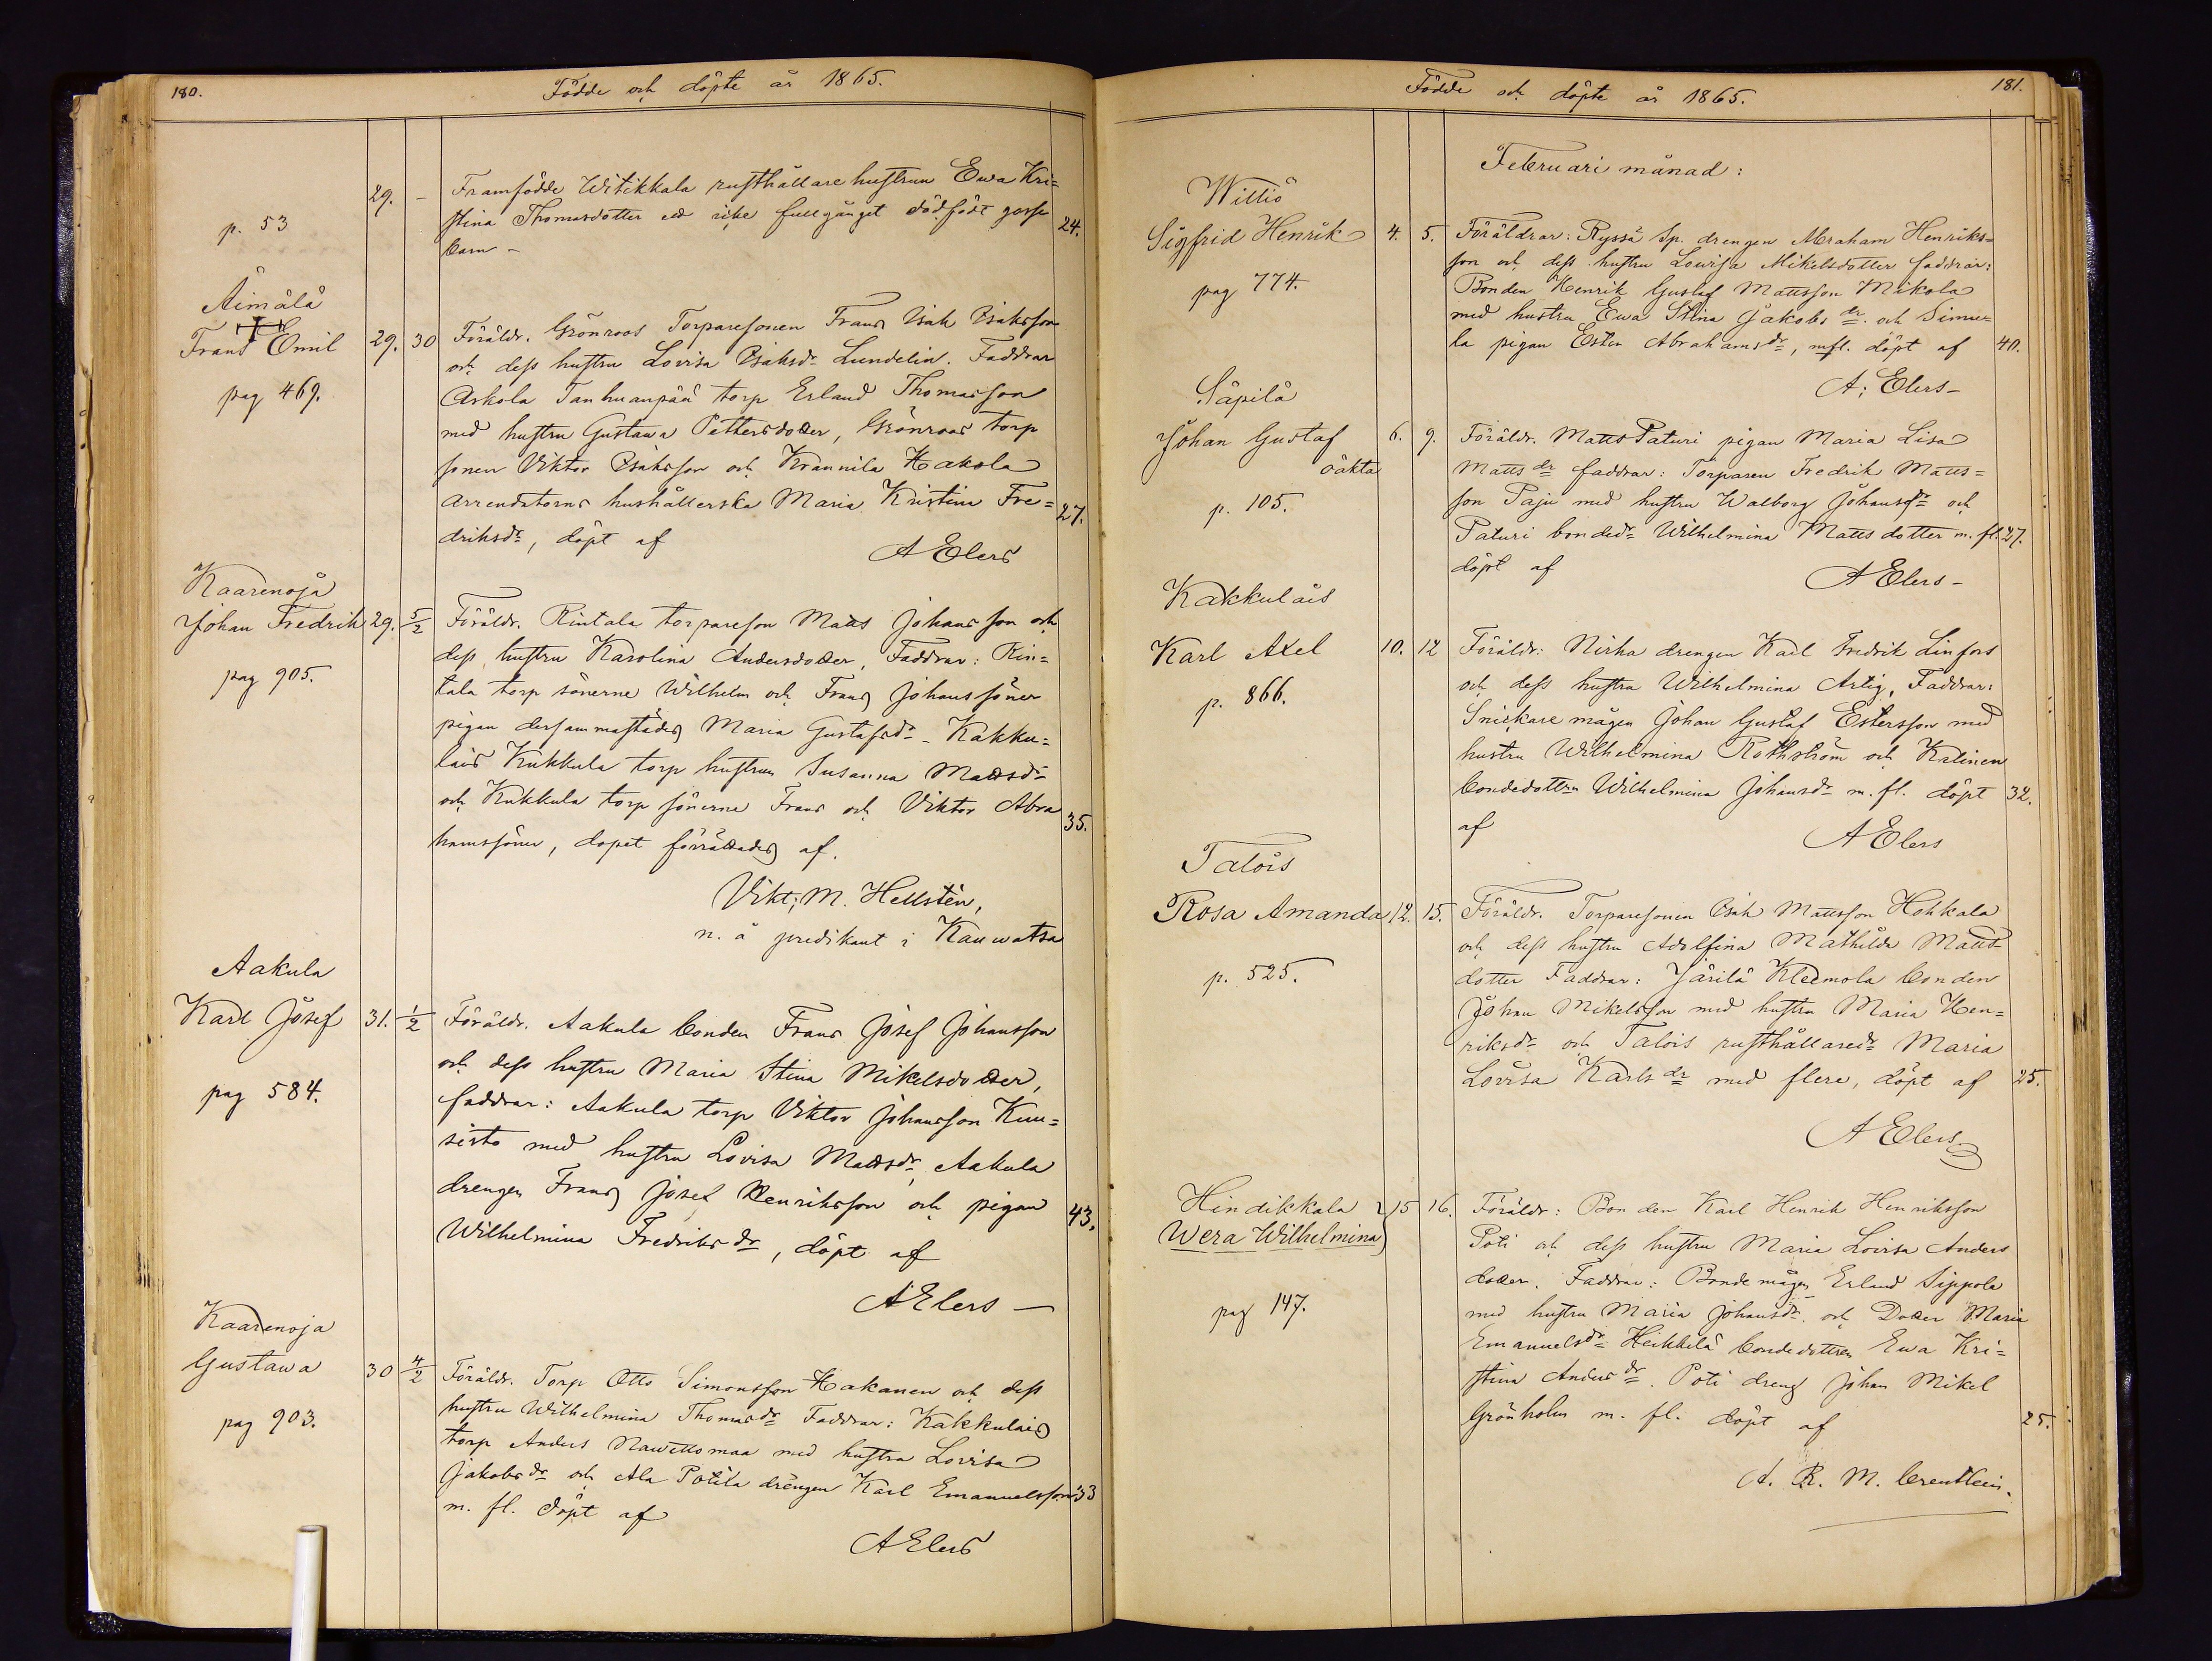 180.
Födde och döpte år 1865.
p. 53
29. –
Framfödde Witikkala rusthållare hustrun Ewa Kri=
stina Thomasdotter ett icke fullgånget dödfödt gosse 24.
barn –
Äimälä
Frans Emil 29. 30
pag 469.
Föräldr. Grönroos Torparesonen Frans Isak Isaksson
och dess hustru Lovisa Isaksdr Lundelin. Faddrar
Askola Tanhuanpää torp Erland Thomasson
med hustru Gustawa Pettersdotter, Grönroos torp
sonen Viktor Isaksson och Krannila Hakola
arrendatorns hushållerska Maria Kristina Fre= 27.
driksdr, döpt af
A Elers
Kaarenoja
Johan Fredrik 29. 5/2
pag 905.
Föräldr. Rintala torpareson Matts Johansson och
dess hustru Karolina Andersdotter, Faddrar: Rin=
tala torp sönerne Wilhelm och Frans Johanssöner
pigan dersammastädes Maria Gustafsdr – Kakku=
lais Kukkula torp hustrun Susanna Mattsdr
och Kukkula torp sönerne Frans och Viktor Abra 35.
hamssöner, dopet förrättades af.
Vikt; M. Hellstén,
n. å predikant i Kauwatsa
Aakula
Karl Josef 31. 1/2
pag 584.
Föräldr. Aakula bonden Frans Josef Johansson
och dess hustru Maria Stina Mikelsdotter,
faddrar: Aakula torp Viktor Johansson Kuu=
sisto med hustru Lovisa Mattsdr, Aakula
drengen Frans Josef Henriksson och pigan 43.
Wilhelmina Fredriksdr, döpt af
A Elers –
Kaarenoja
Gustawa 30 4/2
pag 903.
Föräldr. Torp Otto Simonsson Hakanen och dess
hustru Wilhelmina Thomasdr Faddrar: Kakkulais
torp Anders Nawettomaa med hustru Lovisa
Jakobsdr och Ala Potila drengen Karl Emanuelsson 33
m. fl. döpt af
A Elers
Födde och döpte år 1865.
181.
Februari månad:
Willio
Sigfrid Henrik 4. 5.
pag 774.
Föräldrar: Ryssä Sp. drengen Abraham Henriks=
son och dess hustru Lowisa Mikelsdotter faddrar:
Bonden Henrik Gustaf Mattsson Mikola
med hustru Ewa Stina Jakobsdr. och Simu=
la pigan Ester Abrahamsdr, mfl. döpt af 40.
A; Elers –
Säpilä
Johan Gustaf 6. 9.
oäkta
p. 105.
Föräldr. Matts Paturi pigan Maria Lisa
Mattsdr faddrar: Torparen Fredrik Matts=
son Paju med hustru Walborg Johansdr och
Paturi bondedr Wilhelmina Mattsdotter m. fl. 27.
döpt af
A Elers –
Kakkulais
Karl Axel 10. 12
p. 866.
Föräldr: Nirha drengen Karl Fredrik Linfors
och dess hustru Wilhelmina Artig, Faddrar:
Snickare mågen Johan Gustaf Estersson med
hustru Wilhelmina Rothström och Katinen
bondedottren Wilhelmina Johansdr m. fl. döpt 32.
af
A Elers
Talois
Rosa Amanda 12. 15.
p. 525.
Föräldr. Torparesonen Isak Mattsson Hohkala
och dess hustru Adolfina Mathilda Matts=
dotter Faddrar: Järilä Kleemola bonden
Johan Mikelsson med hustru Maria Hen=
riksdr och Talois rusthållaredr Maria
Lovisa Karlsdr med flere, döpt af 25.
A Elers.
Hindikkala
Wera Wilhelmina 15 16.
pag 147.
Föräldr: Bonden Karl Henrik Henriksson
Poti och dess hustru Maria Lovisa Anders
dotter. Faddrar: Bondemågen Erland Sippola
med hustru Maria Johansdr. och Dotter Maria
Emanuelsdr Heikkilä bondedottren Ewa Kri=
stina Andersdr. Poti dreng Johan Mikel
Grönholm m. fl. döpt af 25.
A. R. M.